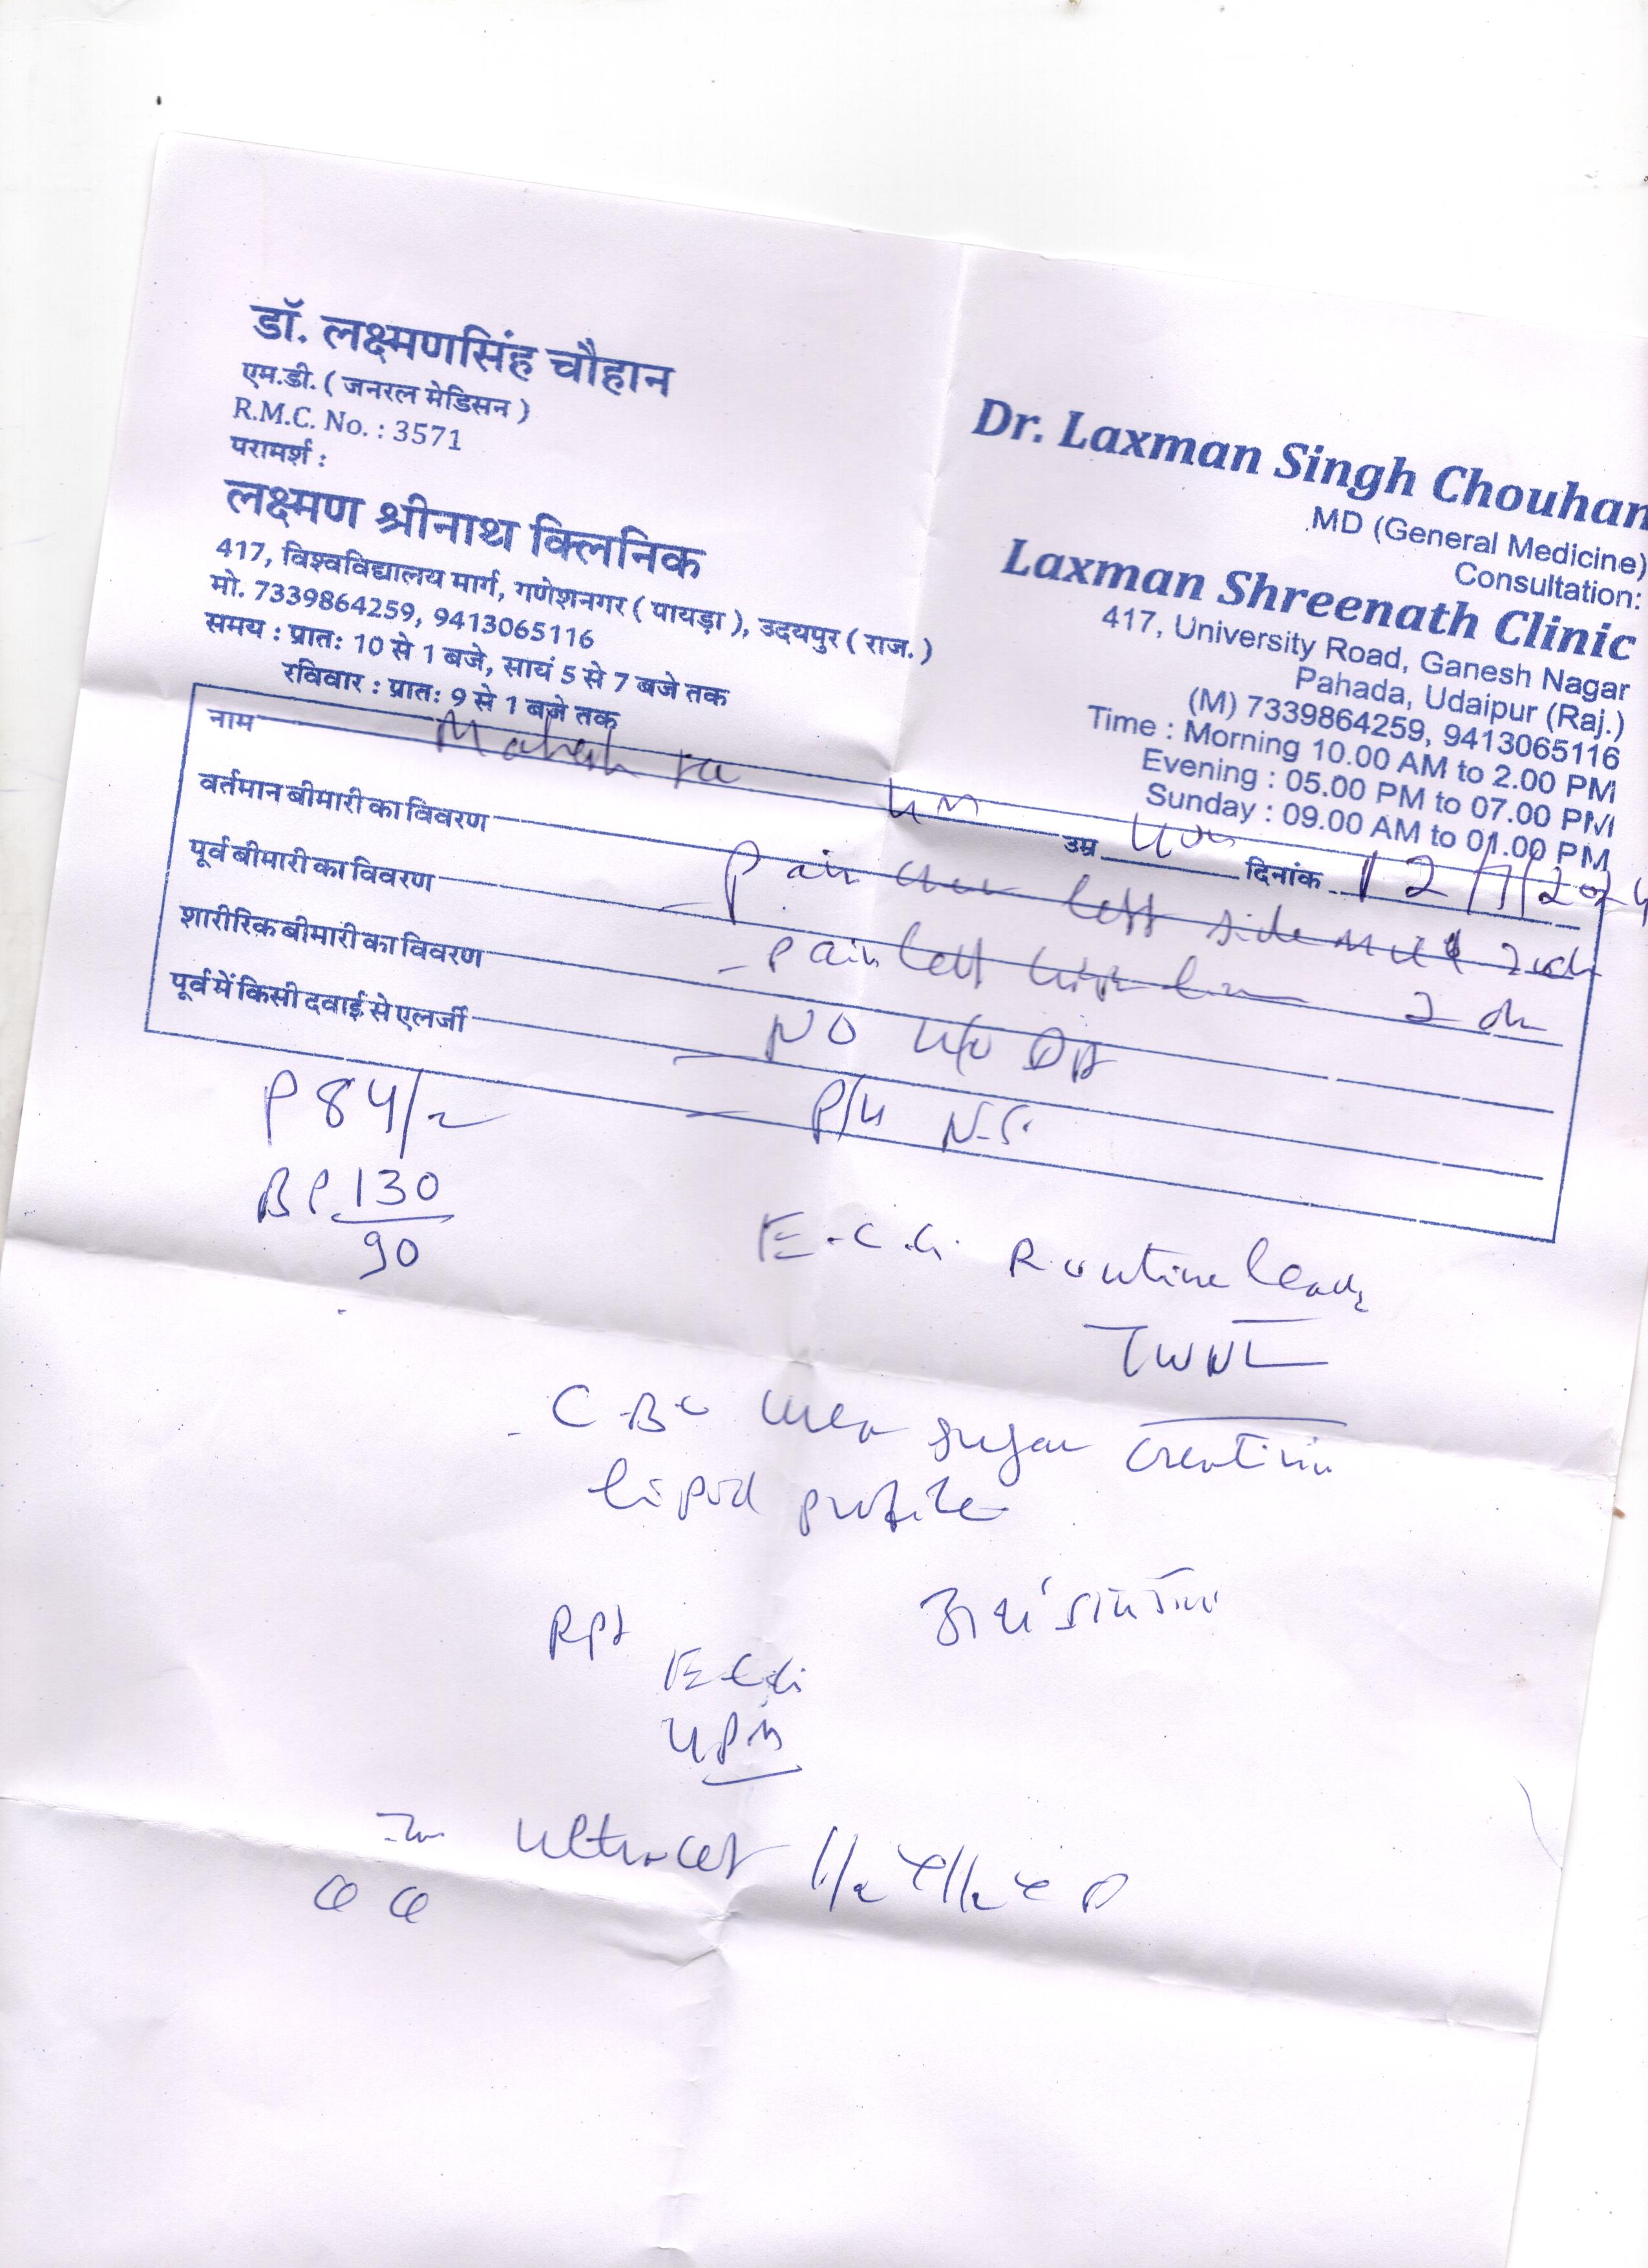 डॉ. लक्ष्मणसिंह चौहान
एम.डी. ( जनरल मेडिसन )
R.M.C. No. : 3571
परामर्श :
लक्ष्मण श्रीनाथ क्लिनिक
417, विश्वविद्यालय मार्ग, गणेशनगर ( पायड़ा ), उदयपुर ( राज. )
मो. 7339864259, 9413065116
समय : प्रातः 10 से 1 बजे, सायं 5 से 7 बजे तक
रविवार : प्रातः 9 से 1 बजे तक
Dr. Laxman Singh Chouhan
MD (General Medicine)
Consultation:
Laxman Shreenath Clinic
417, University Road, Ganesh Nagar
Pahada, Udaipur (Raj.)
(M) 7339864259, 9413065116
Time : Morning 10.00 AM to 2.00 PM
Evening : 05.00 PM to 07.00 PM
Sunday : 09.00 AM to 01.00 PM
नाम Mahesh उम्र दिनांक 12/7/2024
वर्तमान बीमारी का विवरण Pain left side
पूर्व बीमारी का विवरण - Pain left
शारीरिक बीमारी का विवरण NO
पूर्व में किसी दवाई से एलर्जी P/H N.S.
P 84/
BP 130
90
E.C.G. Routine leads
TWNL
- C.B.C urea sugar creatinin
lipid profile
Rpt
ECG
4 PM
Ultracet 1/2 1/2